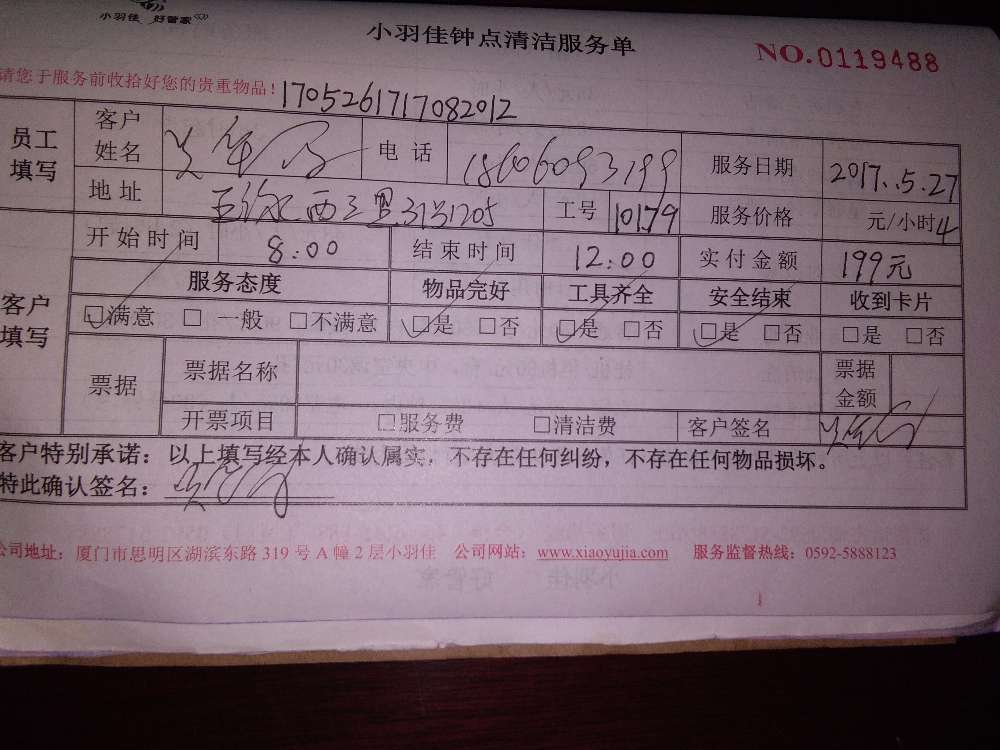 小羽佳 好管家
小羽佳钟点清洁服务单
NO.0119488
请您于服务前收拾好您的贵重物品!
1705261717082012
员工填写 客户姓名 电话 18606093199 服务日期 2017.5.27
地址 31号1205 工号 10179 服务价格 元/小时4
客户填写 开始时间 8:00 结束时间 12:00 实付金额 199元
服务态度 物品完好 工具齐全 安全结束 收到卡片
☑满意 □一般 □不满意 ☑是 □否 ☑是 □否 ☑是 □否 □是 □否
票据 票据名称 票据金额
开票项目 □服务费 □清洁费 客户签名
客户特别承诺:以上填写经本人确认属实,不存在任何纠纷,不存在任何物品损坏。
特此确认签名:
公司地址:厦门市思明区湖滨东路 319 号 A 幢 2 层小羽佳 公司网站:www.xiaoyujia.com 服务监督热线:0592-5888123